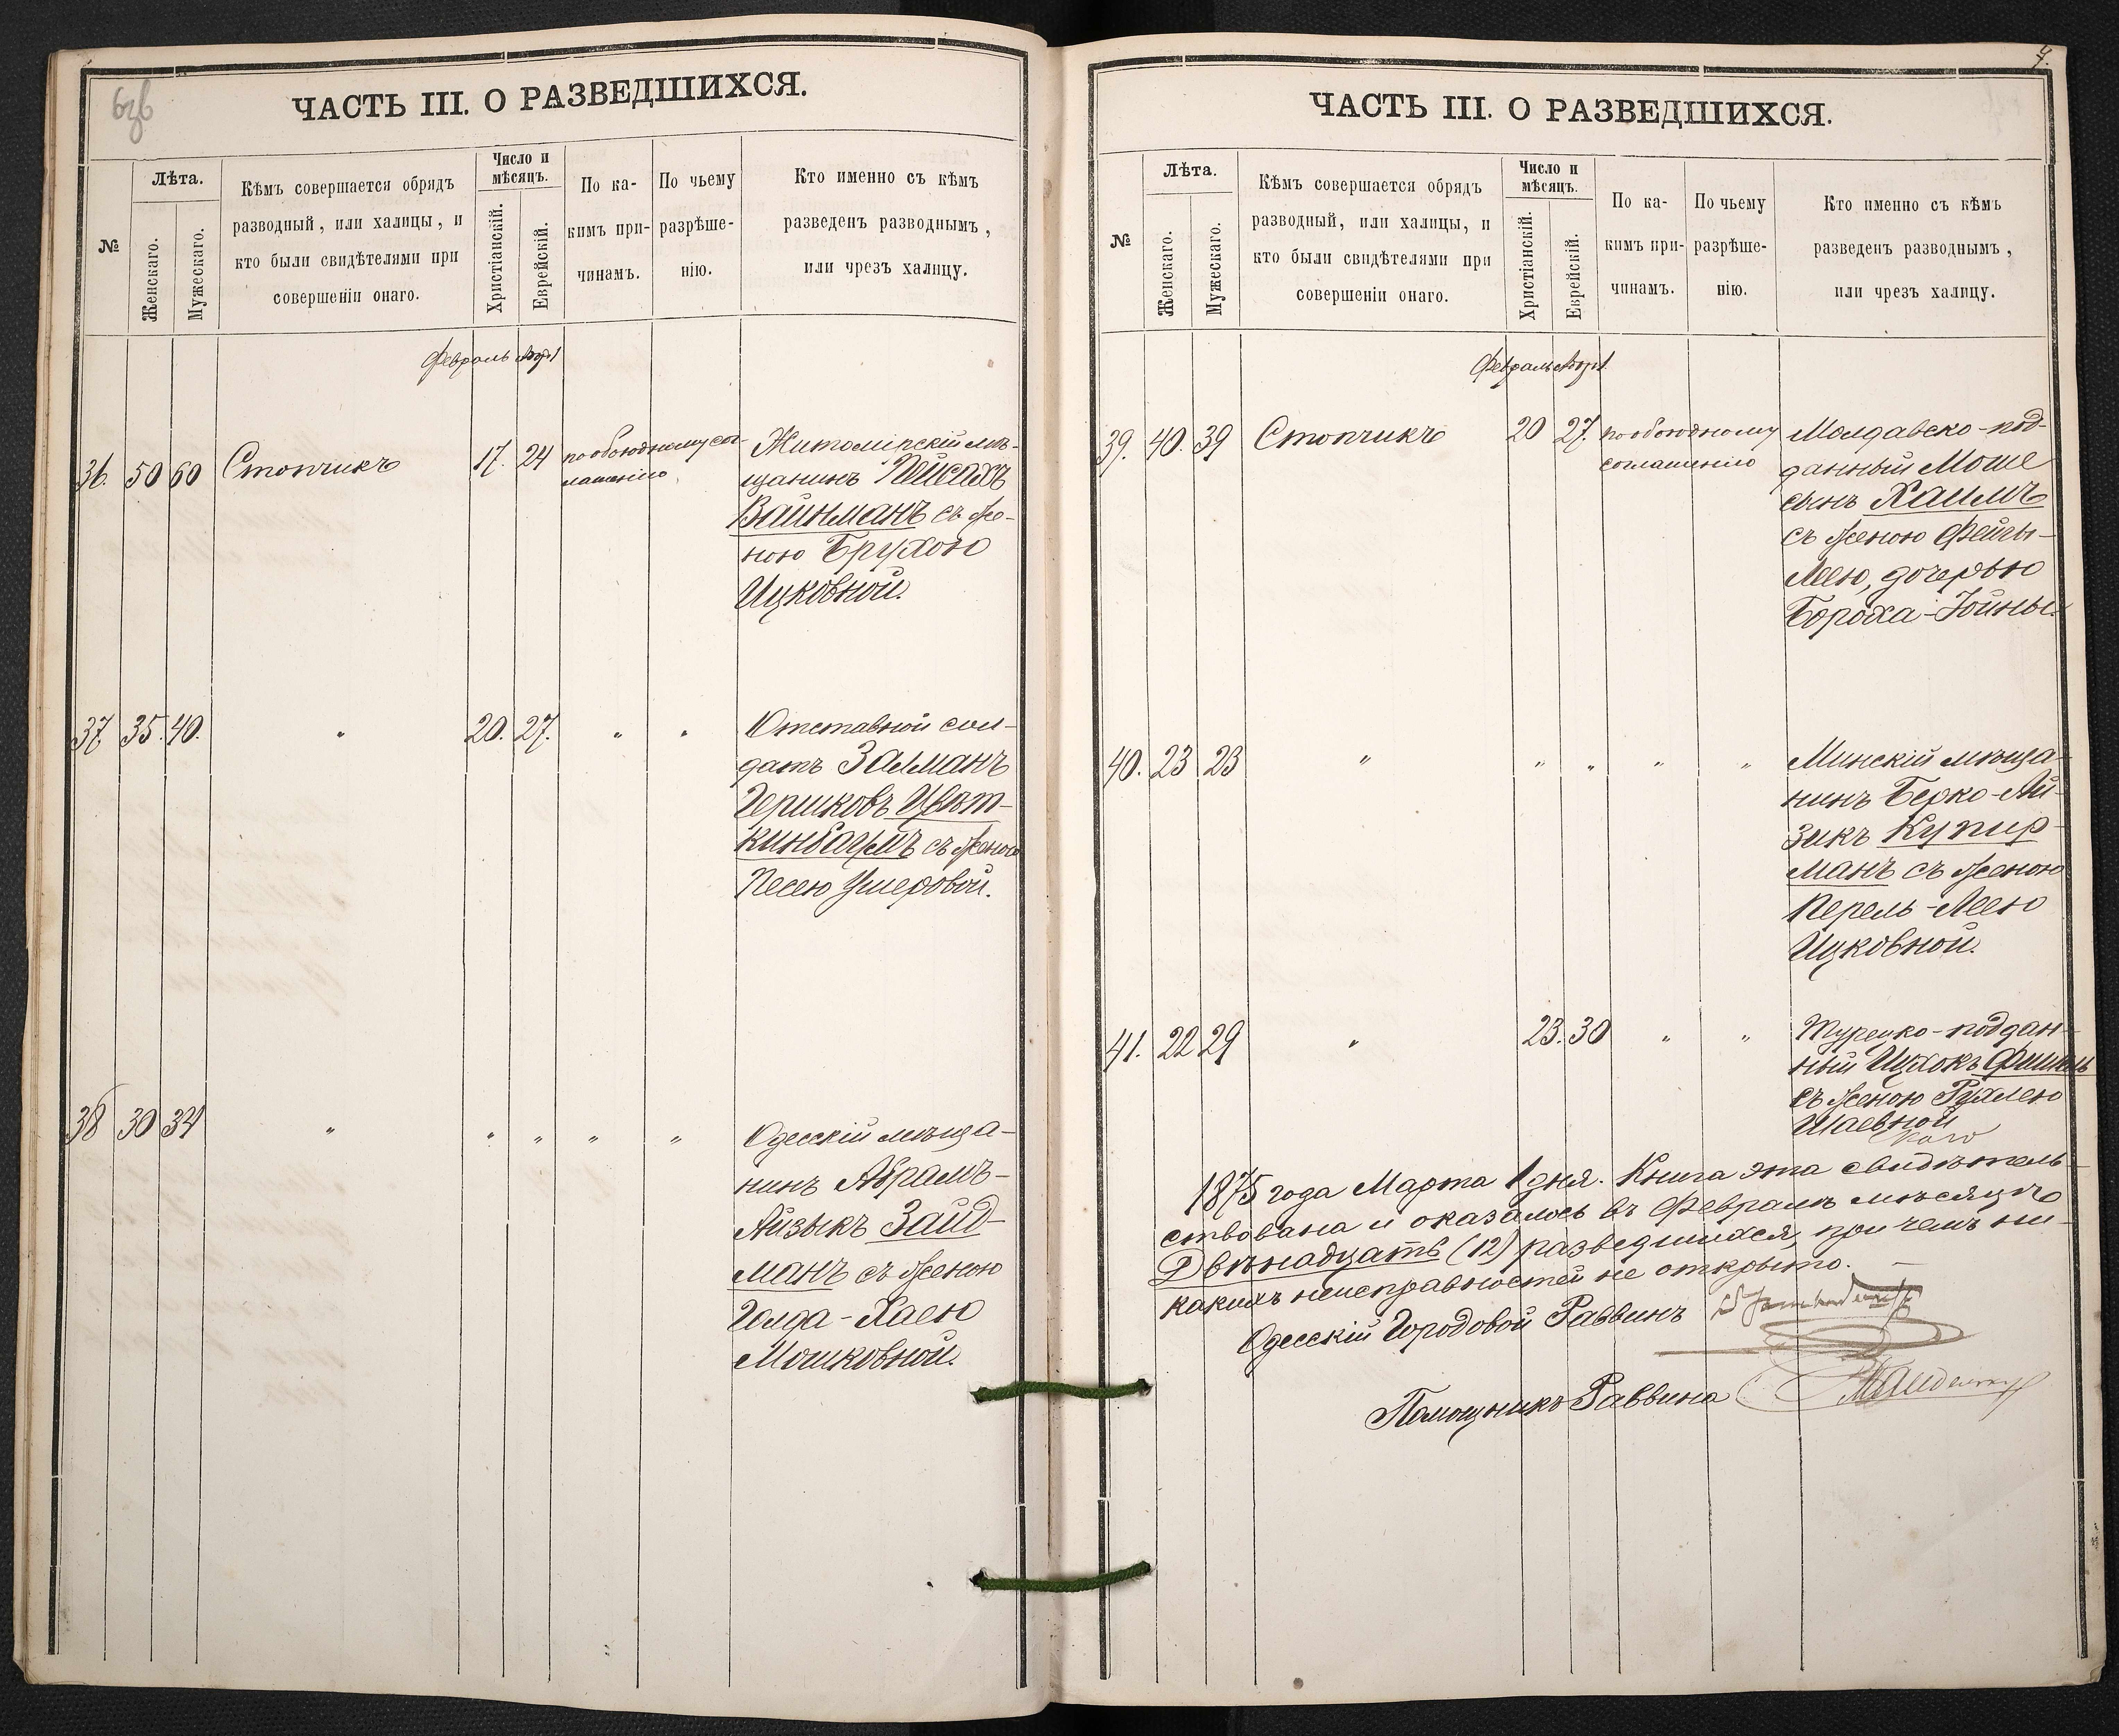 ЧАСТЬ III. О РАЗВЕДШИХСЯ.
№
Лѣта.
Женскаго.
Мужескаго.
Кѣмъ совершается обрядъ
разводный, или халицы, и
кто были свидѣтелями при
совершеніи онаго.
Число и
мѣсяцъ.
Христіанскій.
Еврейскій.
По ка-
кимъ при-
чинамъ.
По чьему
разрѣше-
нію.
Кто именно съ кѣмъ
разведенъ разводнымъ,
или чрезъ халицу.
Февраль
36. 50 60 Стопчикъ 17. 24 по обоюдному сог-
лашенію
Житомірскій мѣ-
щанинъ Пейсахъ
Вайнманъ съ же-
ною Брухою
Ицковной.
37 35. 40. " 20. 27. " "
Отставной сол-
датъ Залманъ
Гершковъ Цвѣт-
кинбаумъ съ женою
Песею Ушеровой.
38 30 34 " " " " "
Одесскій мѣща-
нинъ Абрамъ-
Айзыкъ Зайд-
манъ съ женою
Голда-Хаею
Мошковной.
7.
ЧАСТЬ III. О РАЗВЕДШИХСЯ.
№
Лѣта.
Женскаго.
Мужескаго.
Кѣмъ совершается обрядъ
разводный, или халицы, и
кто были свидѣтелями при
совершеніи онаго.
Число и
мѣсяцъ.
Христіанскій.
Еврейскій.
По ка-
кимъ при-
чинамъ.
По чьему
разрѣше-
нію.
Кто именно съ кѣмъ
разведенъ разводнымъ,
или чрезъ халицу.
Февраль
39. 40. 39 Стопчикъ 20 27. по обоюдному
соглашенію
Молдавско-под-
данный Моше
сынъ Хаимъ
съ женою Фейгы-
Леею, дочерью
Бороха-Іойны.
40. 23 23 " " " " "
Минскій мѣща-
нинъ Берко-Ай-
зикъ Купер-
манъ съ женою
Перель-Леею
Ицковной.
41. 22 29 " 23. 30 " "
Турецко-поддан-
ный Ицхокъ Фишель
съ женою Рухлею
Шаевной
1875 года Марта 1 дня. Книга эта свидѣтель-
ствована и оказалось въ Февралѣ мѣсяцѣ
Двѣнадцать (12) разведшихся, при чемъ ни-
какихъ неисправностей не открыто.
Одесскій Городовой Раввинъ
Помощникъ Раввина